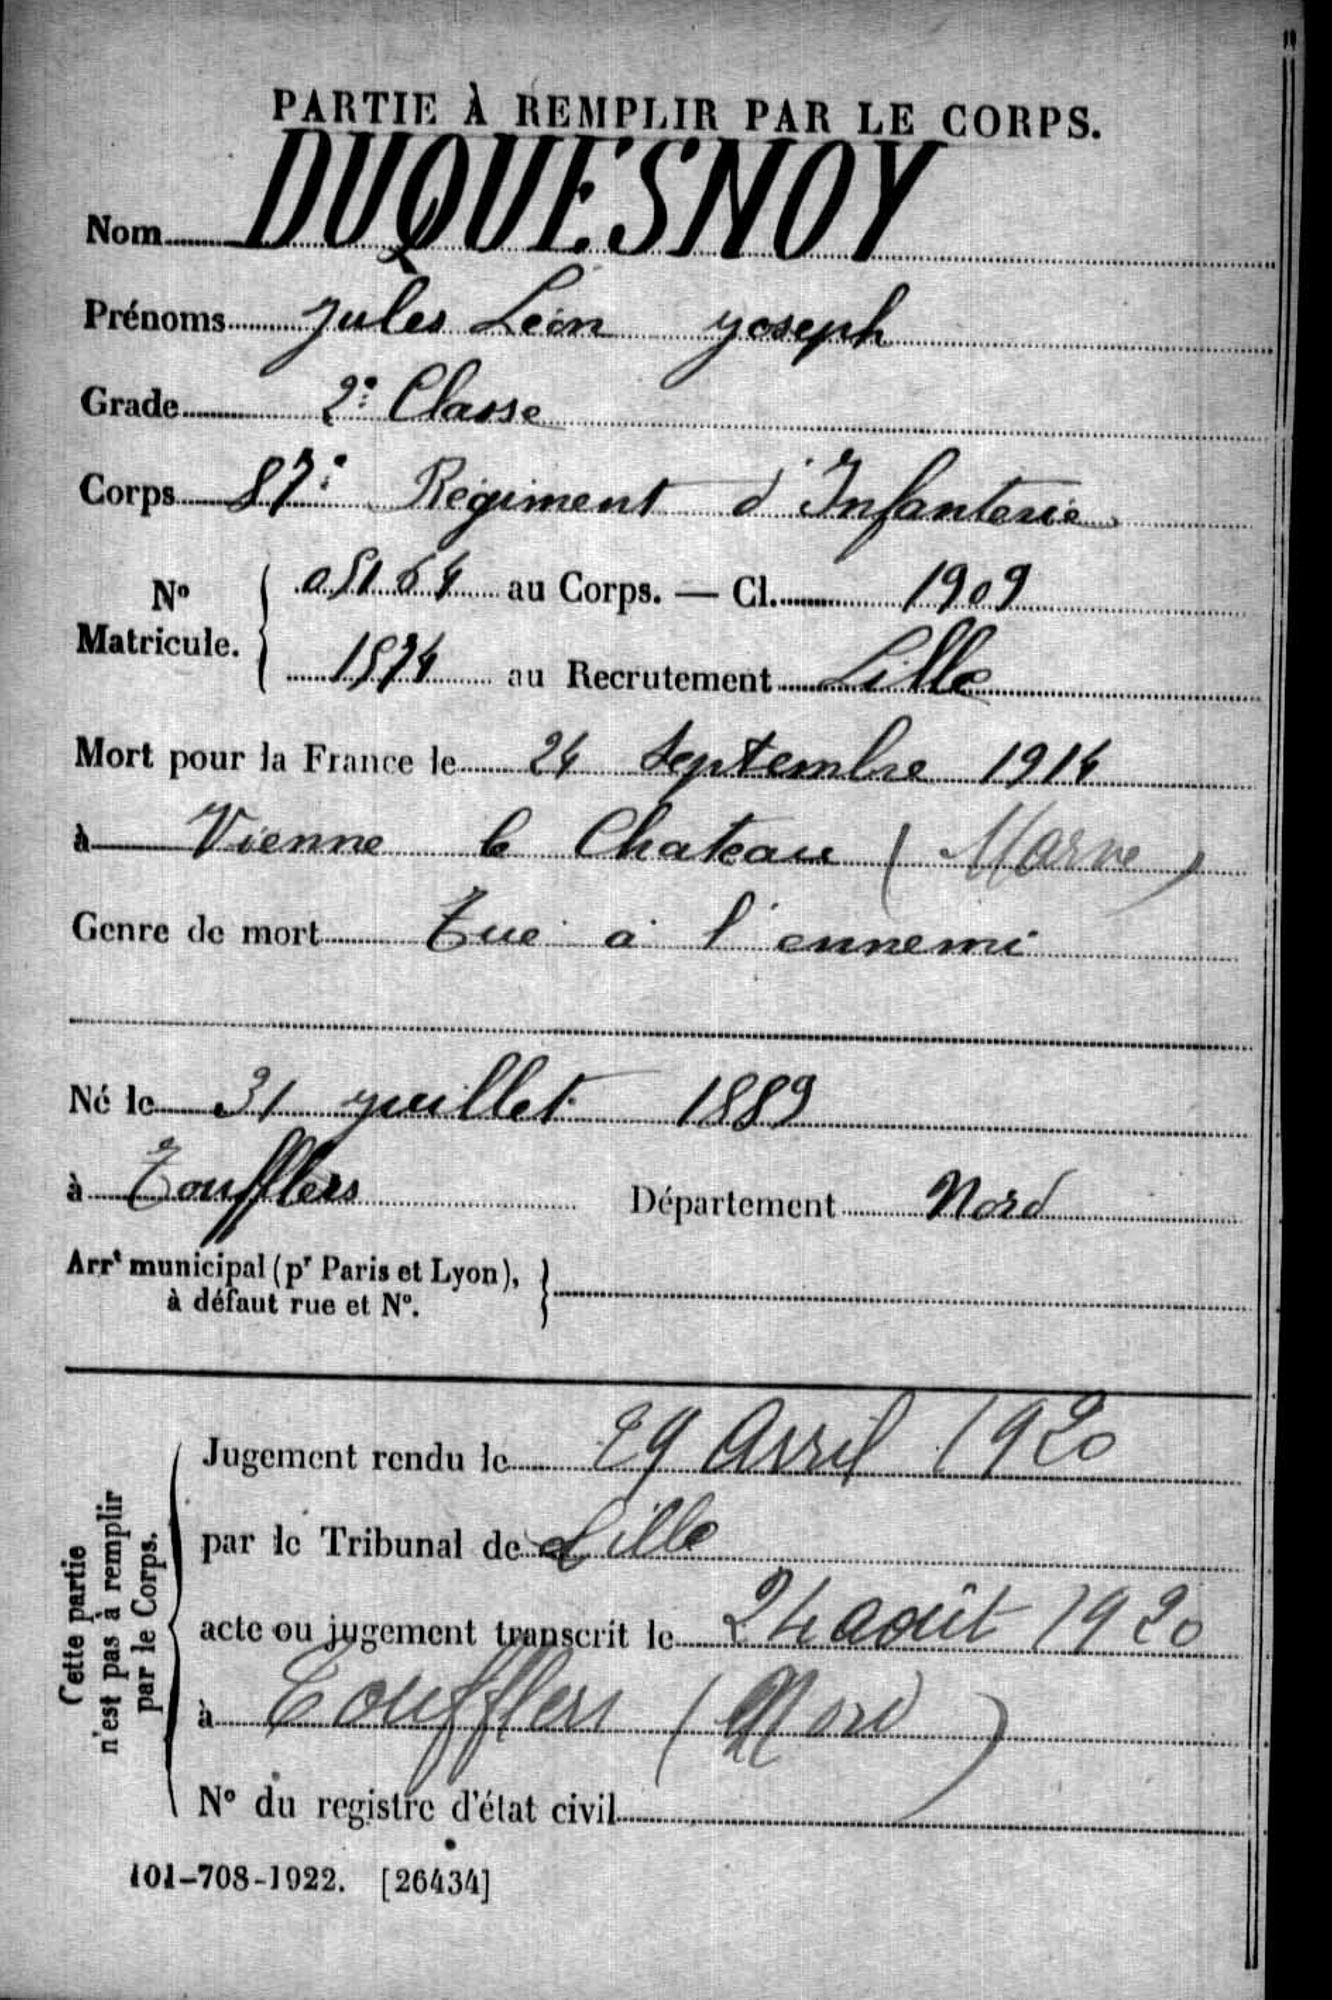 PARTIE À REMPLIR PAR LE CORPS.
Nom DUQUESNOY
Prénoms Jules Léon Joseph
Grade 2e Classe
Corps 87e Régiment d'Infanterie
No Matricule. { 05164 au Corps. — Cl. 1909
1574 au Recrutement Lille
Mort pour la France le 24 Septembre 1914
à Vienne le Chateau (Marne)
Genre de mort Tué à l'ennemi
Né le 31 juillet 1889
à Toufflers Département Nord
Arrt municipal (pr Paris et Lyon), }
à défaut rue et No.
Cette partie
n'est pas à remplir
par le Corps.
Jugement rendu le 29 Avril 1920
par le Tribunal de Lille
acte ou jugement transcrit le 24 août 1920
à Toufflers (Nord)
No du registre d'état civil
101-708-1922. [26434]